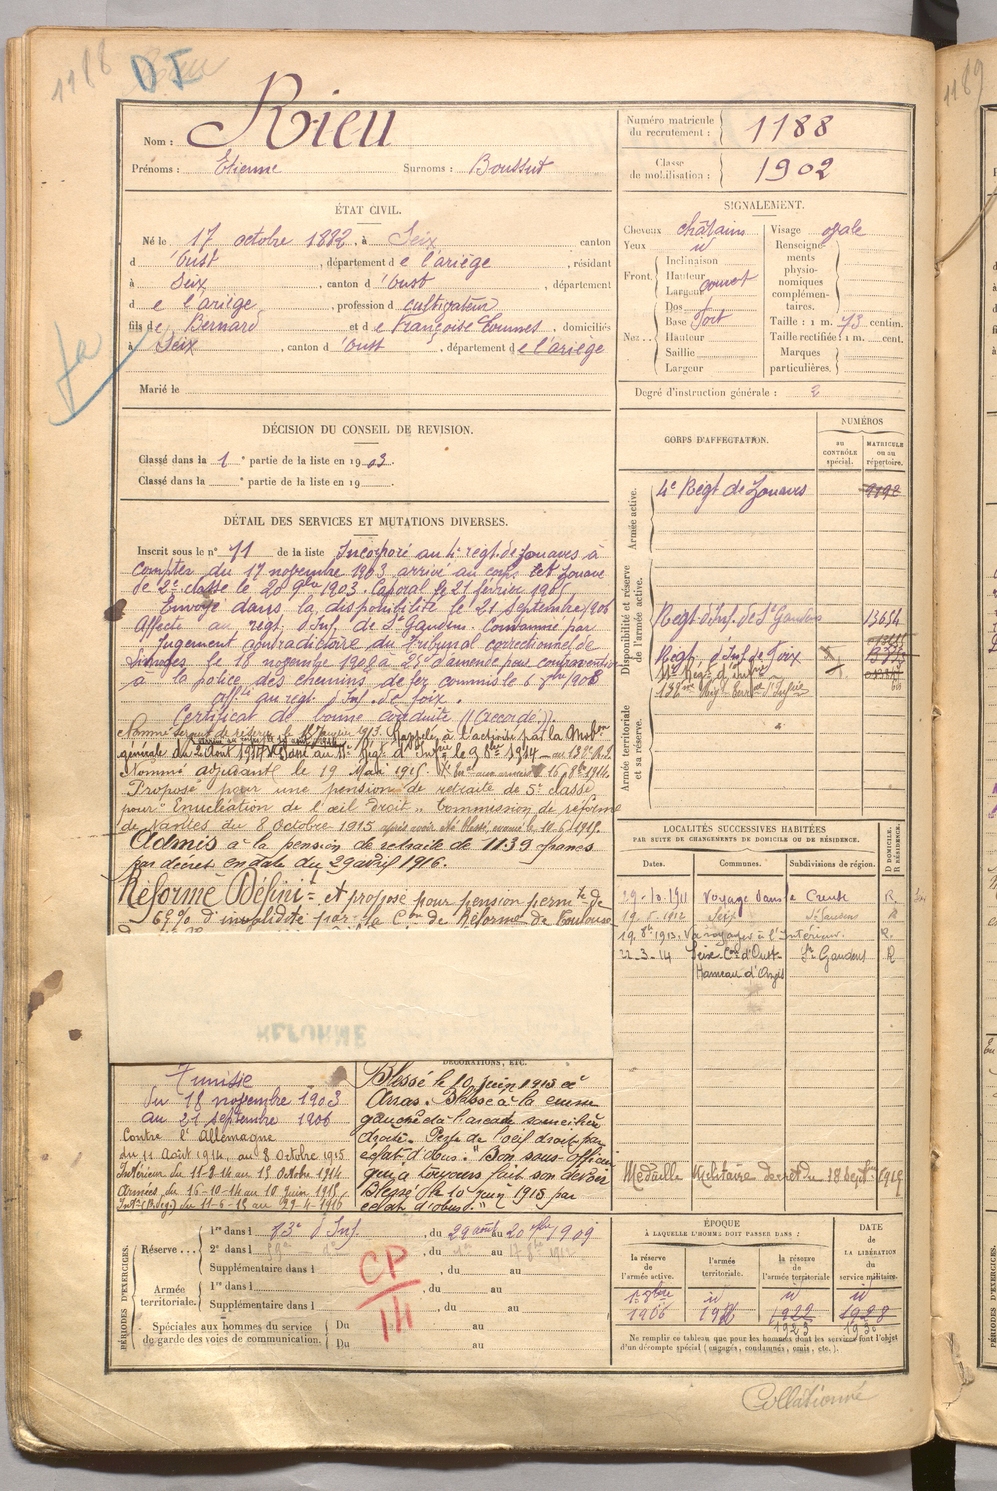 1188
Nom : Rieu
Prénoms : Etienne Surnoms : Boussut
Numéro matricule du recrutement : 1188
Classe de mobilisation : 1902
ÉTAT CIVIL.
Né le 17 octobre 1882, à Seix canton
d'Oust, département de l'ariège, résidant
à Seix, canton d'Oust, département
de l'ariège, profession de cultivateur
fils de Bernard et de Françoise, domiciliés
à Seix, canton d'Oust, département de l'ariège
Marié le
SIGNALEMENT.
Cheveux châtains
Yeux id
Front. Inclinaison
Hauteur
Largeur
Nez. Dos
Base fort
Hauteur
Saillie
Largeur
Visage ovale
Renseignements physionomiques complémentaires.
Taille : 1 m. 73 centim.
Taille rectifiée : 1 m. cent.
Marques particulières.
Degré d'instruction générale : 2
DÉCISION DU CONSEIL DE REVISION.
Classé dans la 1e partie de la liste en 1903.
Classé dans la e partie de la liste en 19
CORPS D'AFFECTATION.
NUMÉROS
au CONTRÔLE spécial.
MATRICULE ou au répertoire.
Armée active.
4e Regt de Zouaves 9192
Disponibilité et réserve de l'armée active.
Regt d'Inf. de St Gaudens 13654
Regt d'Inf. de Foix
11e Regt d'Infrie
Armée territoriale et sa réserve.
DÉTAIL DES SERVICES ET MUTATIONS DIVERSES.
Inscrit sous le n° 71 de la liste Incorporé au 4e regt de Zouaves à
compter du 17 novembre 1903 arrivé au corps et Zouave
de 2e classe le 20 9bre 1903. Caporal le 21 février 1905
Envoyé dans la disponibilité le 21 Septembre 1906
Affecté au regt d'Inf. de St Gaudens. Condamné par
Jugement contradictoire du Tribunal correctionnel de
Limoges le 18 novembre 1908 à 25f d'amende pour contravention
à la police des chemins de fer commis le 6 1908
Affté au regt d'Inf. de Foix.
Certificat de bonne conduite "(accordé)".
Nommé sergent de réserve le 1913. Rappelé à l'activité par la Mobon
générale du 2 Août 1914. Passé au 11e Regt d'Infrie le 9 8bre 1914
Nommé adjudant le 19 Mai 1915. aux armées le 16 8bre 1914.
Proposé pour une pension de retraite de 5e classe
pour "Enucléation de l'œil droit". Commission de réforme
de Nantes du 8 Octobre 1915 après avoir été blessé, évacué le 10.6.1915.
Admis à la pension de retraite de 1139 francs
par décret en date du 29 avril 1916.
Réformé Définit et proposé pour pension permte de
65% d'invalidité par la Con de Réforme de Toulouse
LOCALITÉS SUCCESSIVES HABITÉES
PAR SUITE DE CHANGEMENTS DE DOMICILE OU DE RÉSIDENCE.
Dates. Communes. Subdivisions de région. D DOMICILE. R RÉSIDENCE.
29-10-1911 Voyage dans la Creuse R.
19.5.1912 Seix St Gaudens R
19.8bre 1913. Va voyager à l'Intérieur. R.
22-3-14 Seix Con d'Oust St Gaudens R
Hameau d'
RÉFORME
DÉCORATIONS, ETC.
Tunisie
du 18 novembre 1903
au 21 septembre 1906
Contre l'Allemagne
du 11 Août 1914, au 8 Octobre 1915
Intérieur du 11-8-14 au 15 Octobre 1914
Armées du 16-10-14 au 10 Juin 1915
du 11-6-15 au 29-4-1916
Blessé le 10 juin 1915 à
Arras. Blessé à la cuisse
gauche et à l'arcade sourcilière
droite. Perte de l'oeil droit par
éclat d'obus. "Bon sous-officier
qui a toujours fait son devoir
Blessé le 10 juin 1915 par
éclat d'obus."
Médaille Militaire Décret du 18 Septbre 1919
PÉRIODES D'EXERCICES.
Réserve... 1re dans l 83e d'Inf., du 29 août au 20 1909
2e dans l, du au 1912
Supplémentaire dans l, du au
Armée territoriale. 1re dans l, du au
Supplémentaire dans l, du au
Spéciales aux hommes du service de garde des voies de communication. Du au
Du au
CP
14
ÉPOQUE
À LAQUELLE L'HOMME DOIT PASSER DANS :
la réserve de l'armée active.
l'armée territoriale.
la réserve de l'armée territoriale
DATE de LA LIBÉRATION du service militaire.
1906 1922 1928
1923
Ne remplir ce tableau que pour les hommes dont les services font l'objet
d'un décompte spécial (engagés, condamnés, omis, etc.).
Collationné
1189